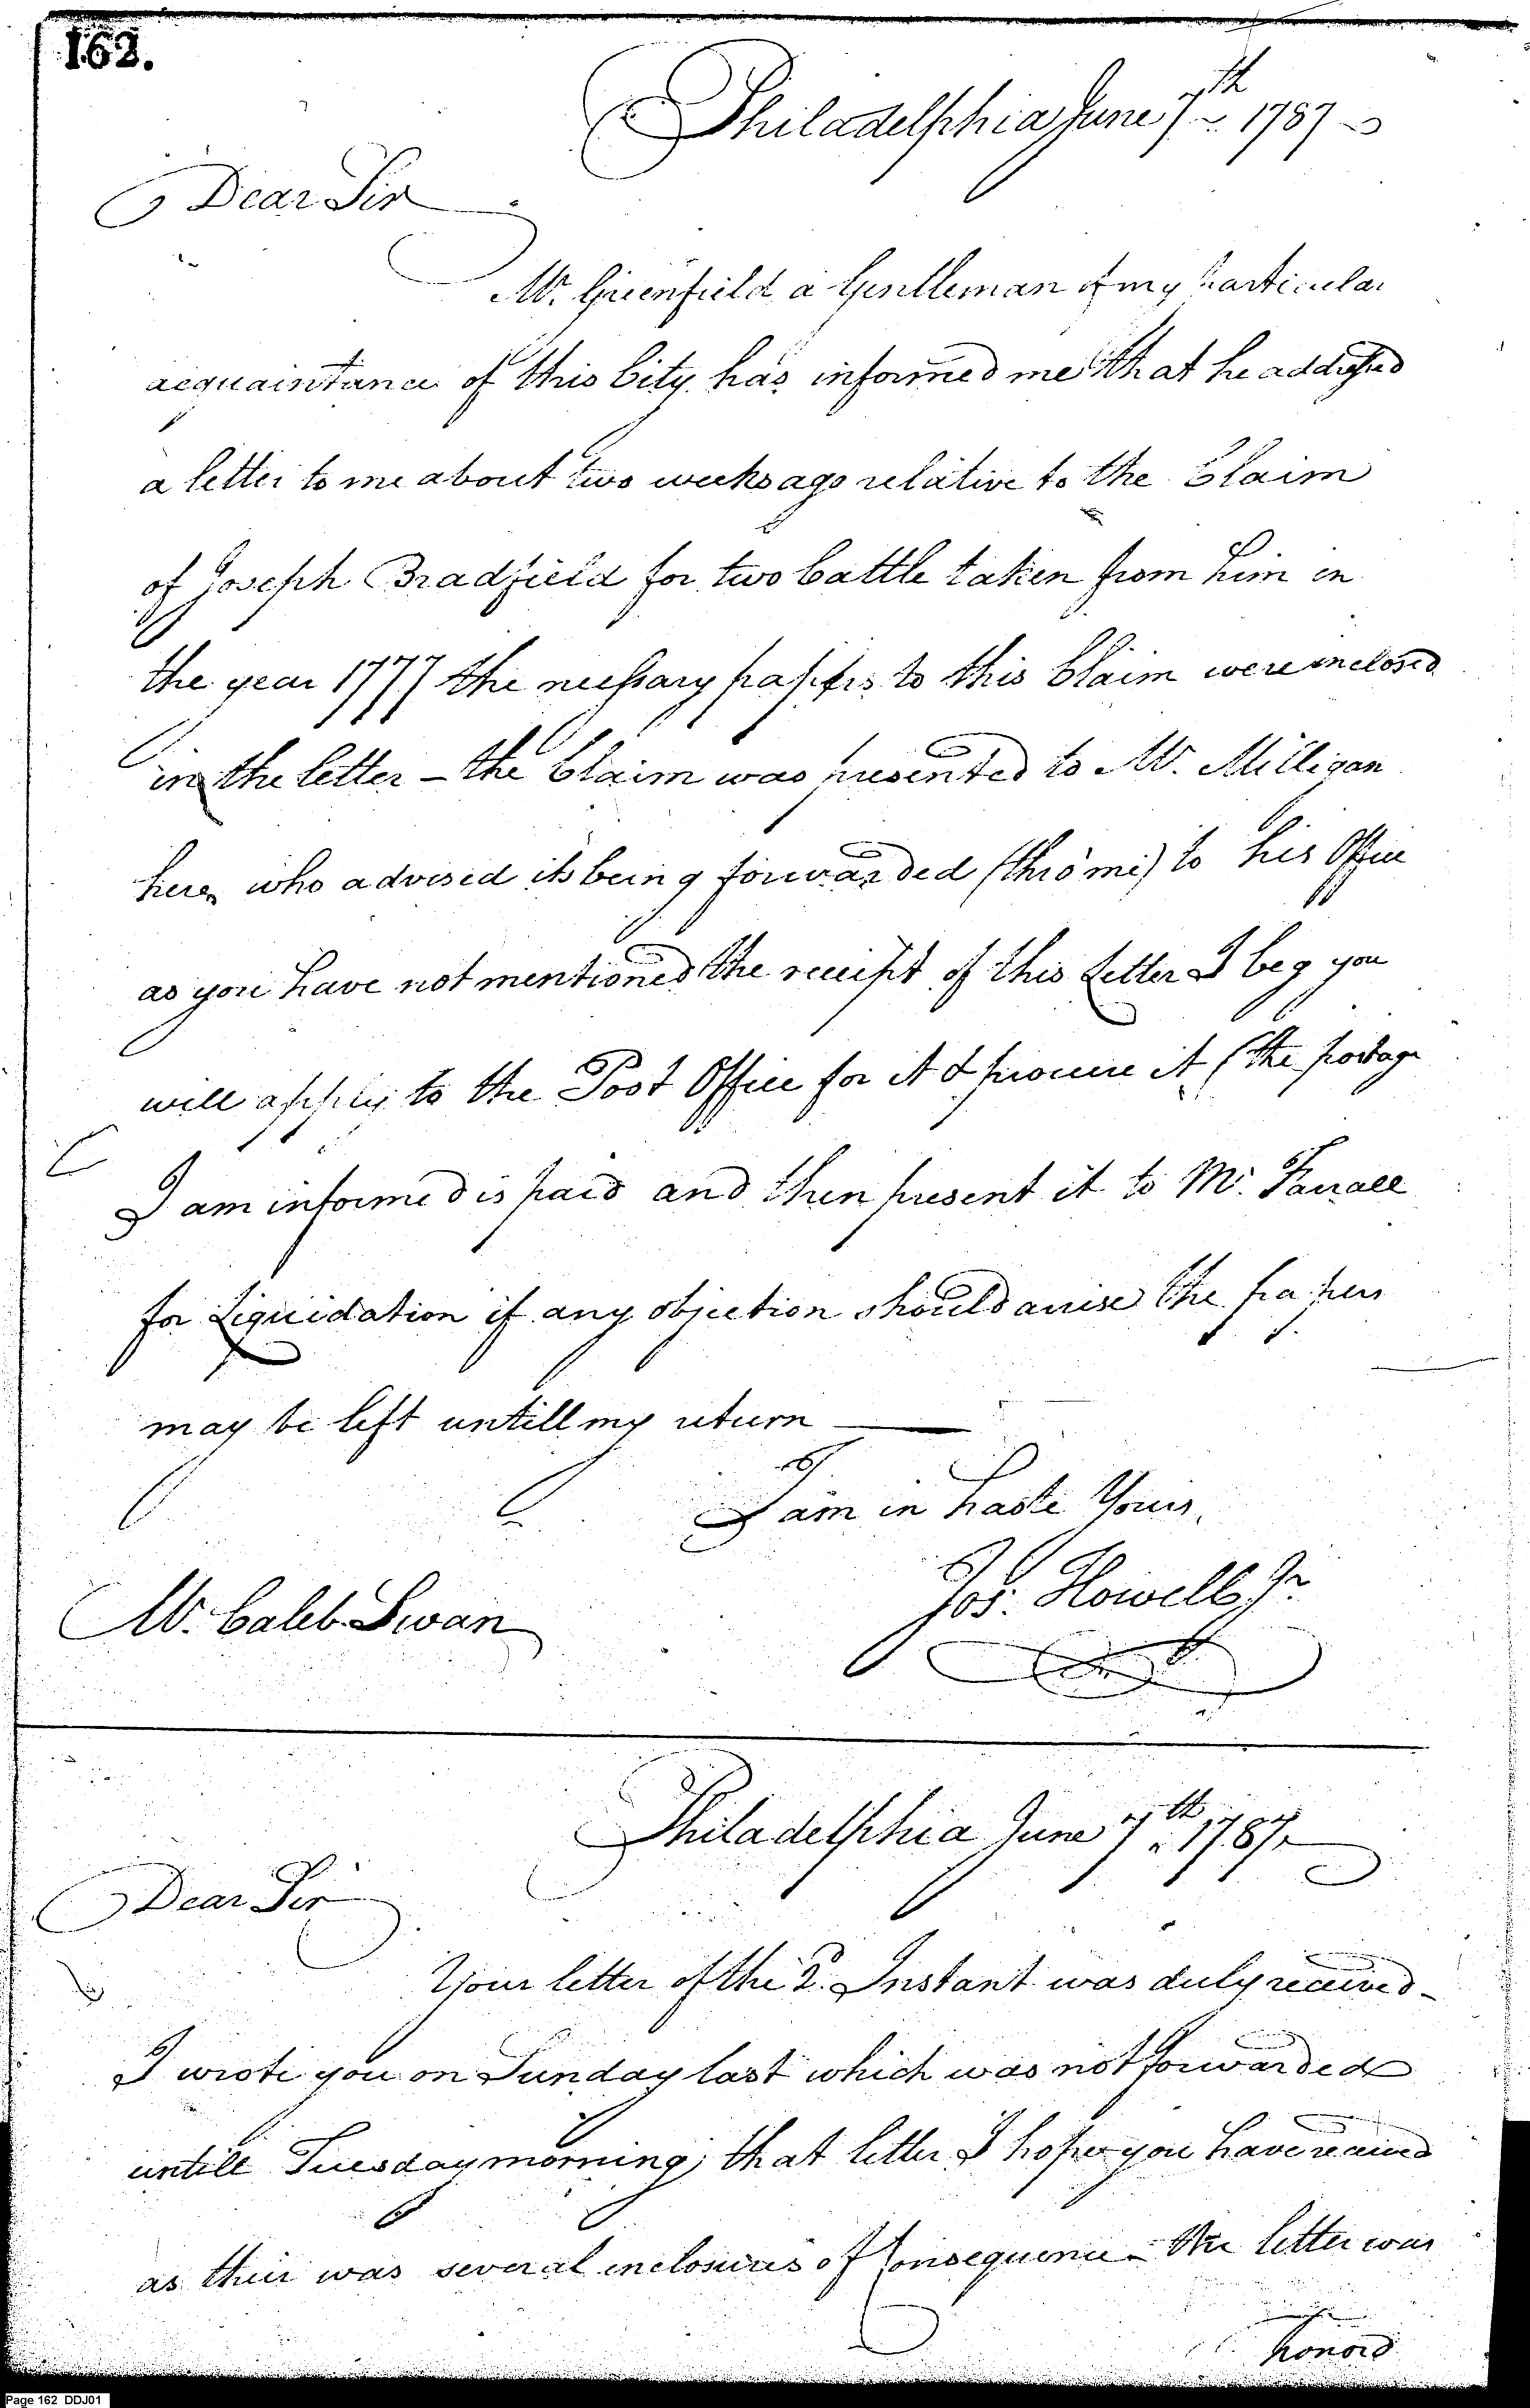 162.
Philadelphia June 7th 1787
Dear Sir
Mr. Greenfield a Gentleman of my particular
acquaintance of this City has informed me that he addressed
a letter to me about two weeks ago relative to the Claim
of Joseph Bradfield for two Cattle taken from him in
the year 1777 the necessary papers to this Claim were inclosed
in the letter – the Claim was presented to Mr. Milligan
here, who advised its being forwarded (thro' me) to his Office
as you have not mentioned the receipt of this Letter I beg you
will apply to the Post Office for it & procure it (the postage
I am informed is paid and then present it to Mr. Farrall
for Liquidation if any objection should arise the papers
may be left untill my return —
I am in haste Yours,
Jos. Howell Jr.
Mr. Caleb Swan
Philadelphia June 7th 1787
Dear Sir
Your letter of the 2. Instant was duly received –
I wrote you on Sunday last which was not forwarded
untill Tuesday morning, that letter I hope you have received
as their was several inclosures of Consequence – the letter was
honord
Page 162 DDJ01